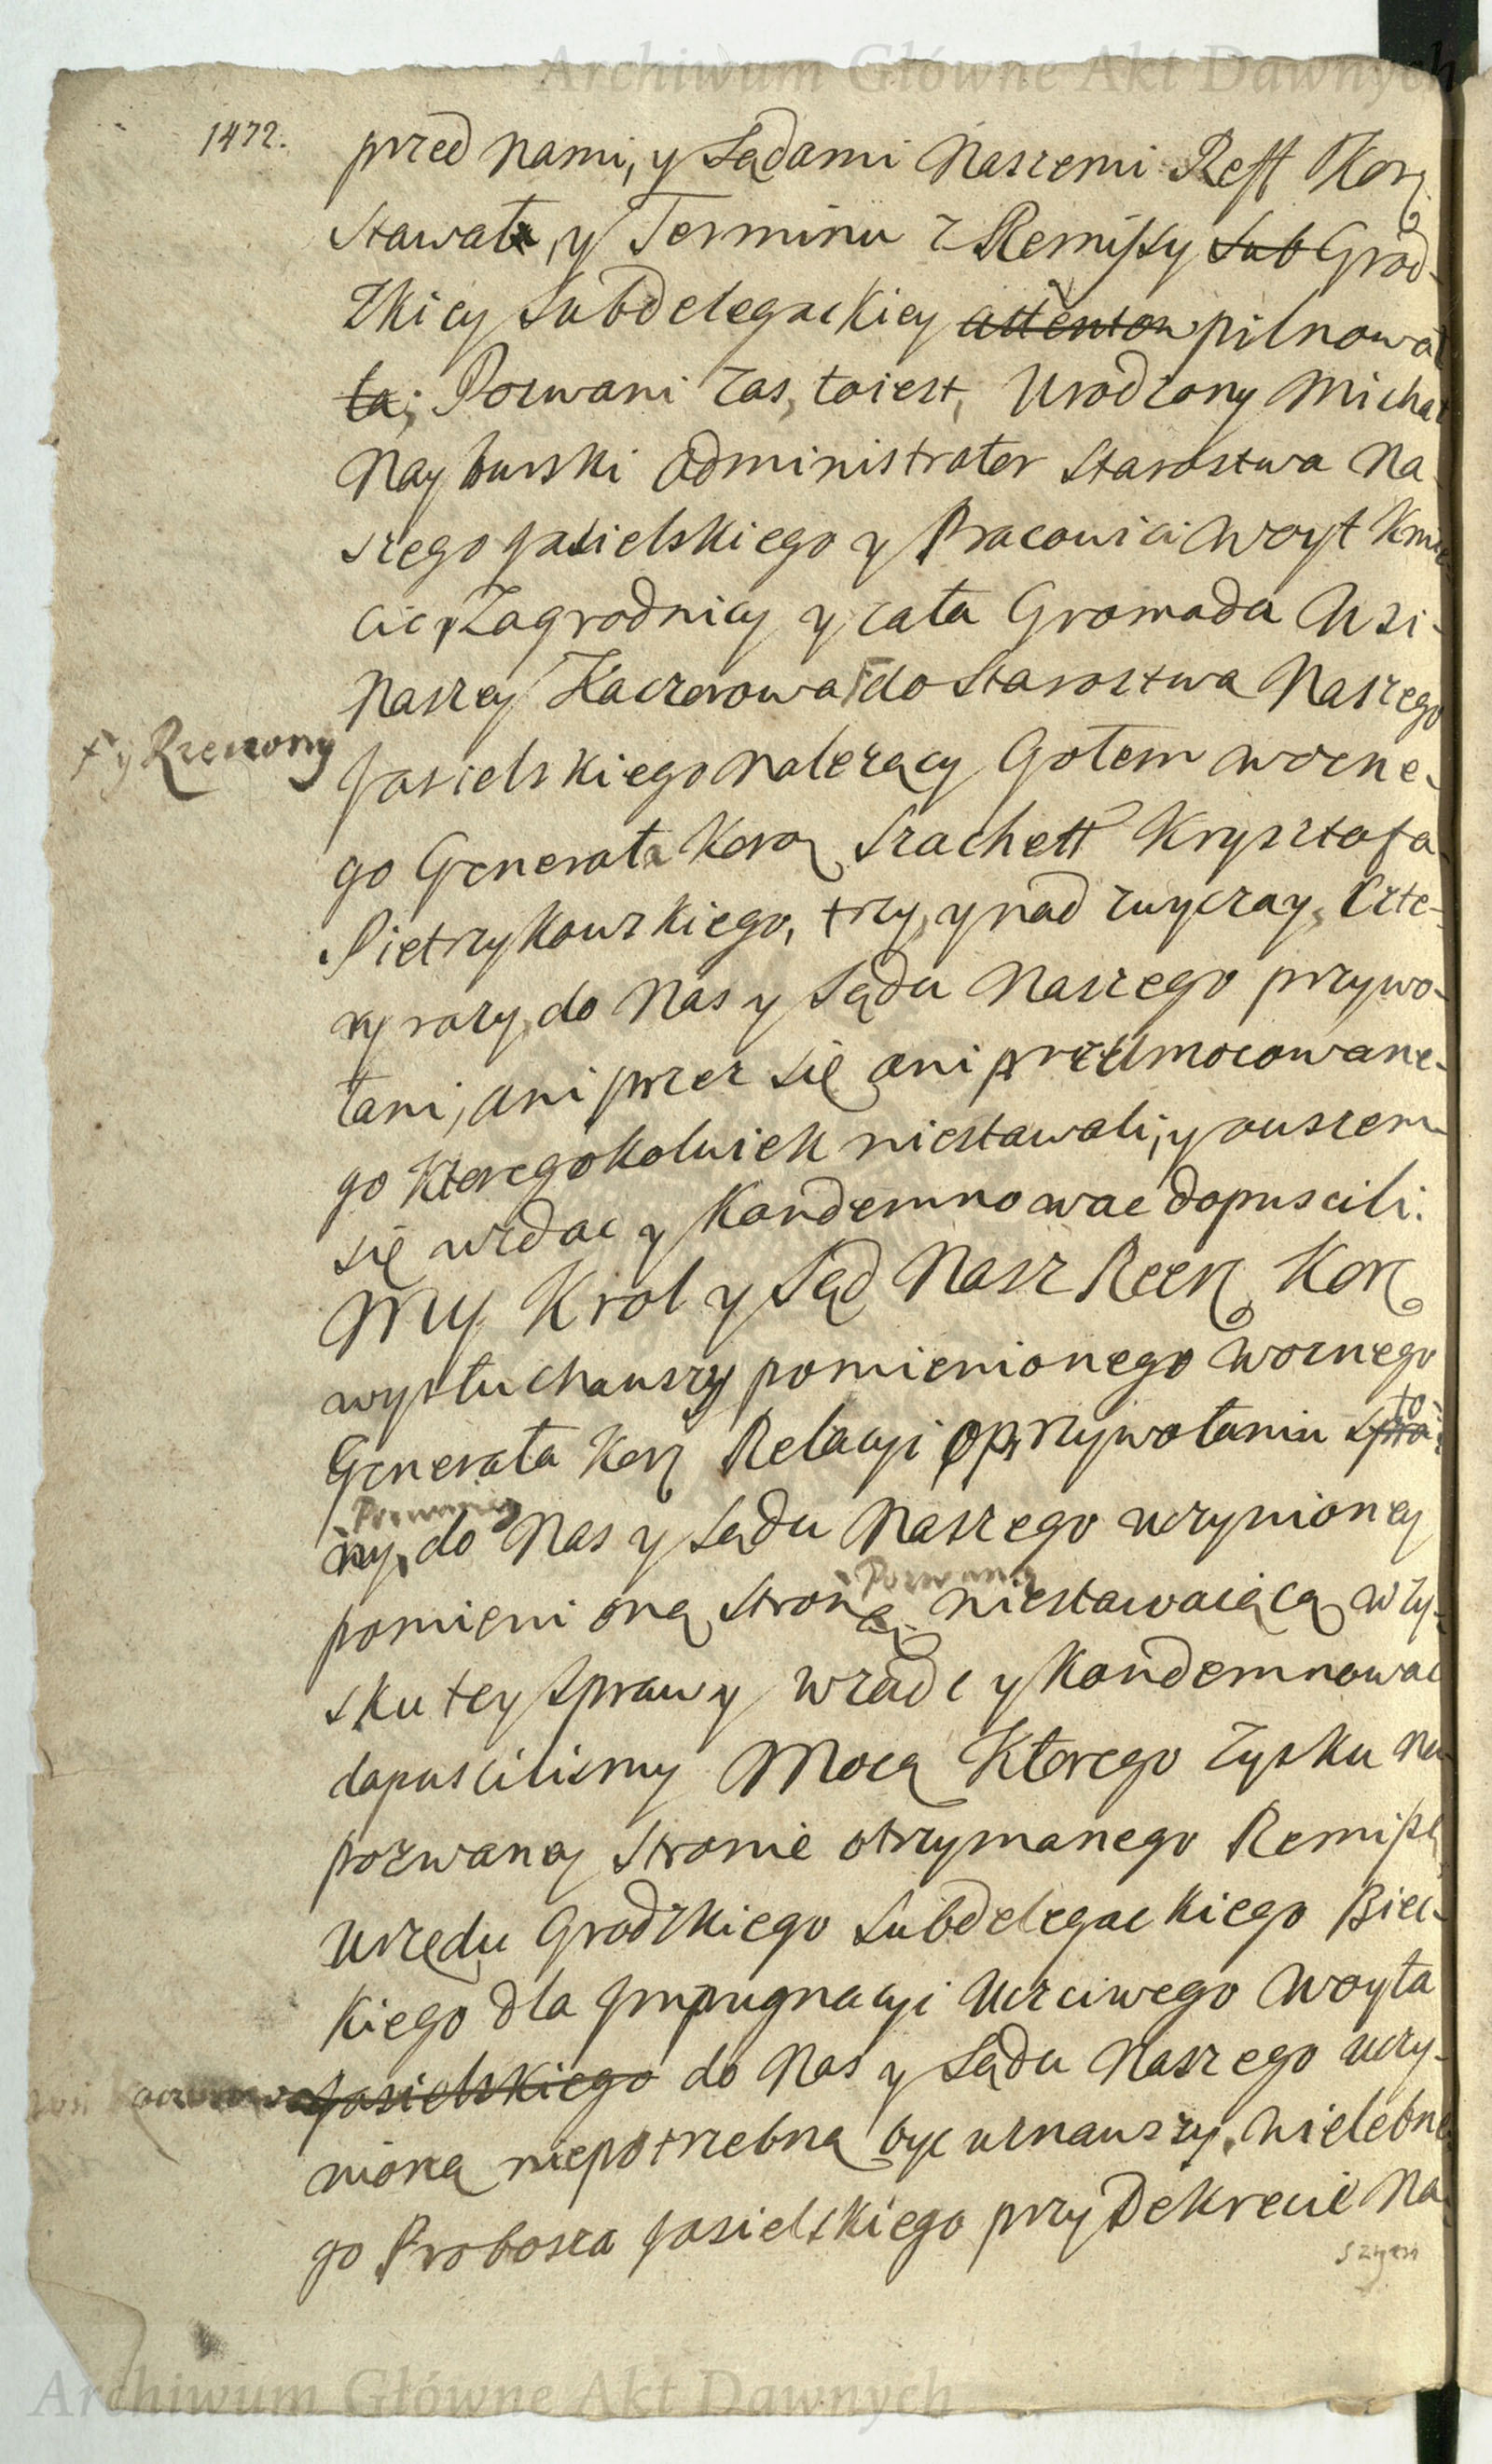 Archiwum Główne Akt Dawnych
1472.
przed nami, y Sądami Naszemi Reff Kor
Stawał, y Terminu z Remissy Sub Grod-
zkiey Subdelegackiey attentow pilnował
ła; Pozwani zas, toiest, Urodzony Michał
Nayburski Administrator Starostwa Na-
szego Jasielskiego y Pracowici Woyt Kmie-
cie, Zagrodnicy y cała Gromada Wsi-
Naszey Kaczorowa do Starostwa Naszego
+ y Rzeczony
Jasielskiego nalezący Głosem Wozne-
go Generała Kor Szlachett Krysztofa
Pietrzykowskiego, trzy, y nad zwyczay, Czte-
ry razy, do Nas y Sądu Naszego przywo-
łani, ani przez się ani przez umocowane-
go ktoregokolwiek niestawali, y owszem
się wzdac y Kondemnowac dopuscili.
My Krol y Sąd Nasz Reen Kor
wysłuchawszy pomienionego Woznego
Generała Kor Relacyi o przywołaniu stro-
Pozwaney
ny, do Nas y Sądu Naszego uczynioney
Pozwaną
pomienioną Stronę niestawaiącą w zy-
sku tey Sprawy wzdac y Kondemnowac
dopuscilismy Mocą Ktorego zysku na
pozwaney Stronie otrzymanego Remissę
Urzędu Grodzkiego Subdelegackiego Biec-
kiego dla Impugnacyi Uczciwego Woyta
Jasielskiego do Nas y Sądu Naszego uczy-
nioną niepotrzebną byc uznawszy, Wielebne-
go Proboszcza Jasielskiego przy Dekrecie Na-
szym
Archiwum Główne Akt Dawnych